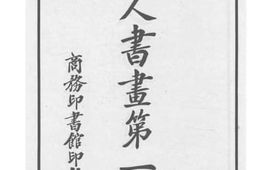 人書畫第
商務印書館印